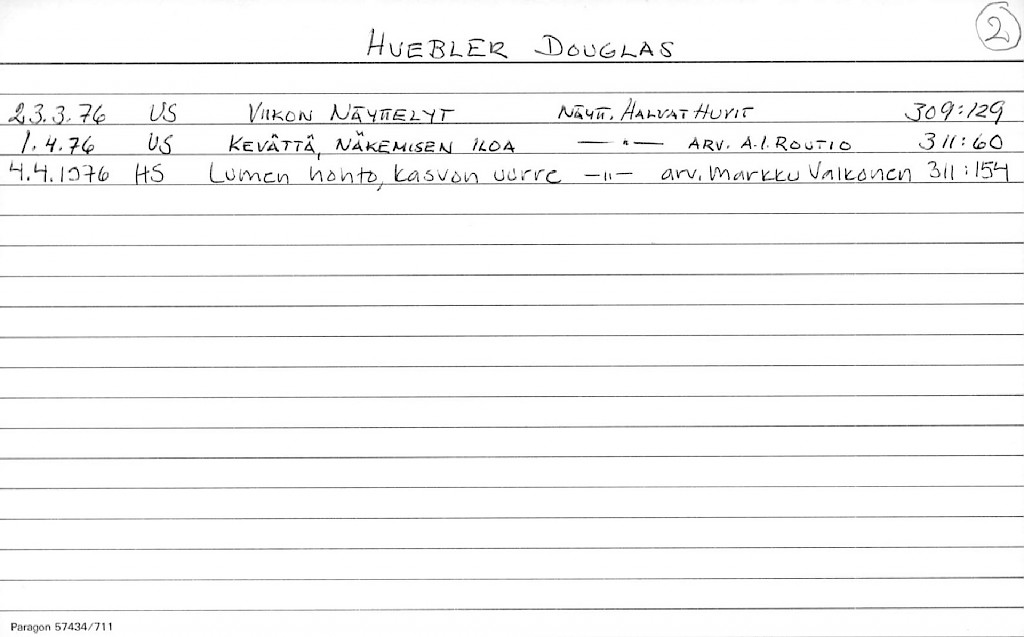 2
HUEBLER DOUGLAS
23.3.76 US VIIKON NÄYTTELYT NÄYTT. HALVAT HUVIT 309:129
1.4.76 US KEVÄTTÄ, NÄKEMISEN ILOA —"— ARV. A-I. ROUTIO 311:60
4.4.1976 HS Lumen hohto, kasvon uurre —"— arv. Markku Valkonen 311:154
Paragon 57434/711